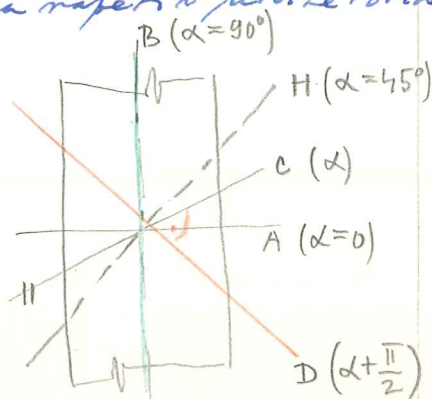 B (α=90°)
H (α=45°)
C (α)
A (α=0)
D (α+π/2)